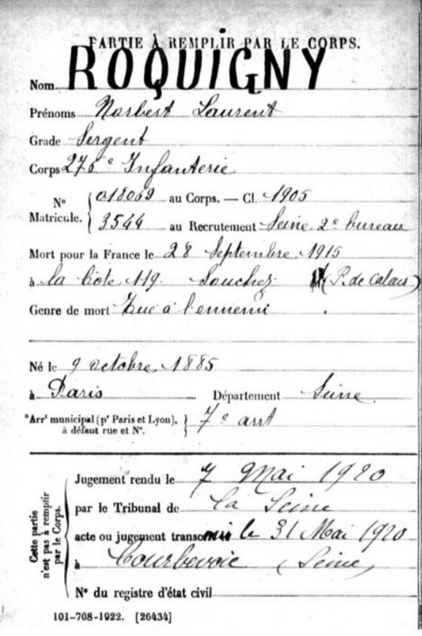 PARTIE À REMPLIR PAR LE CORPS.
Nom ROQUIGNY
Prénoms Norbert Laurent
Grade Sergent
Corps 276e Infanterie
N° Matricule. { 018069 au Corps. — Cl. 1905
3544 au Recrutement Seine 2e bureau
Mort pour la France le 28 Septembre 1915
à la Côte 119. Souchez (P. de Calais)
Genre de mort Tué à l'ennemi
Né le 9 octobre 1885
à Paris Département Seine
Arrt municipal (pr Paris et Lyon), à défaut rue et N°. } 7e arrt
Cette partie n'est pas à remplir par le Corps.
Jugement rendu le 7 Mai 1920
par le Tribunal de la Seine
acte ou jugement transcrit le 31 Mai 1920
à Courbevoie (Seine)
N° du registre d'état civil
101-708-1922. [26434]